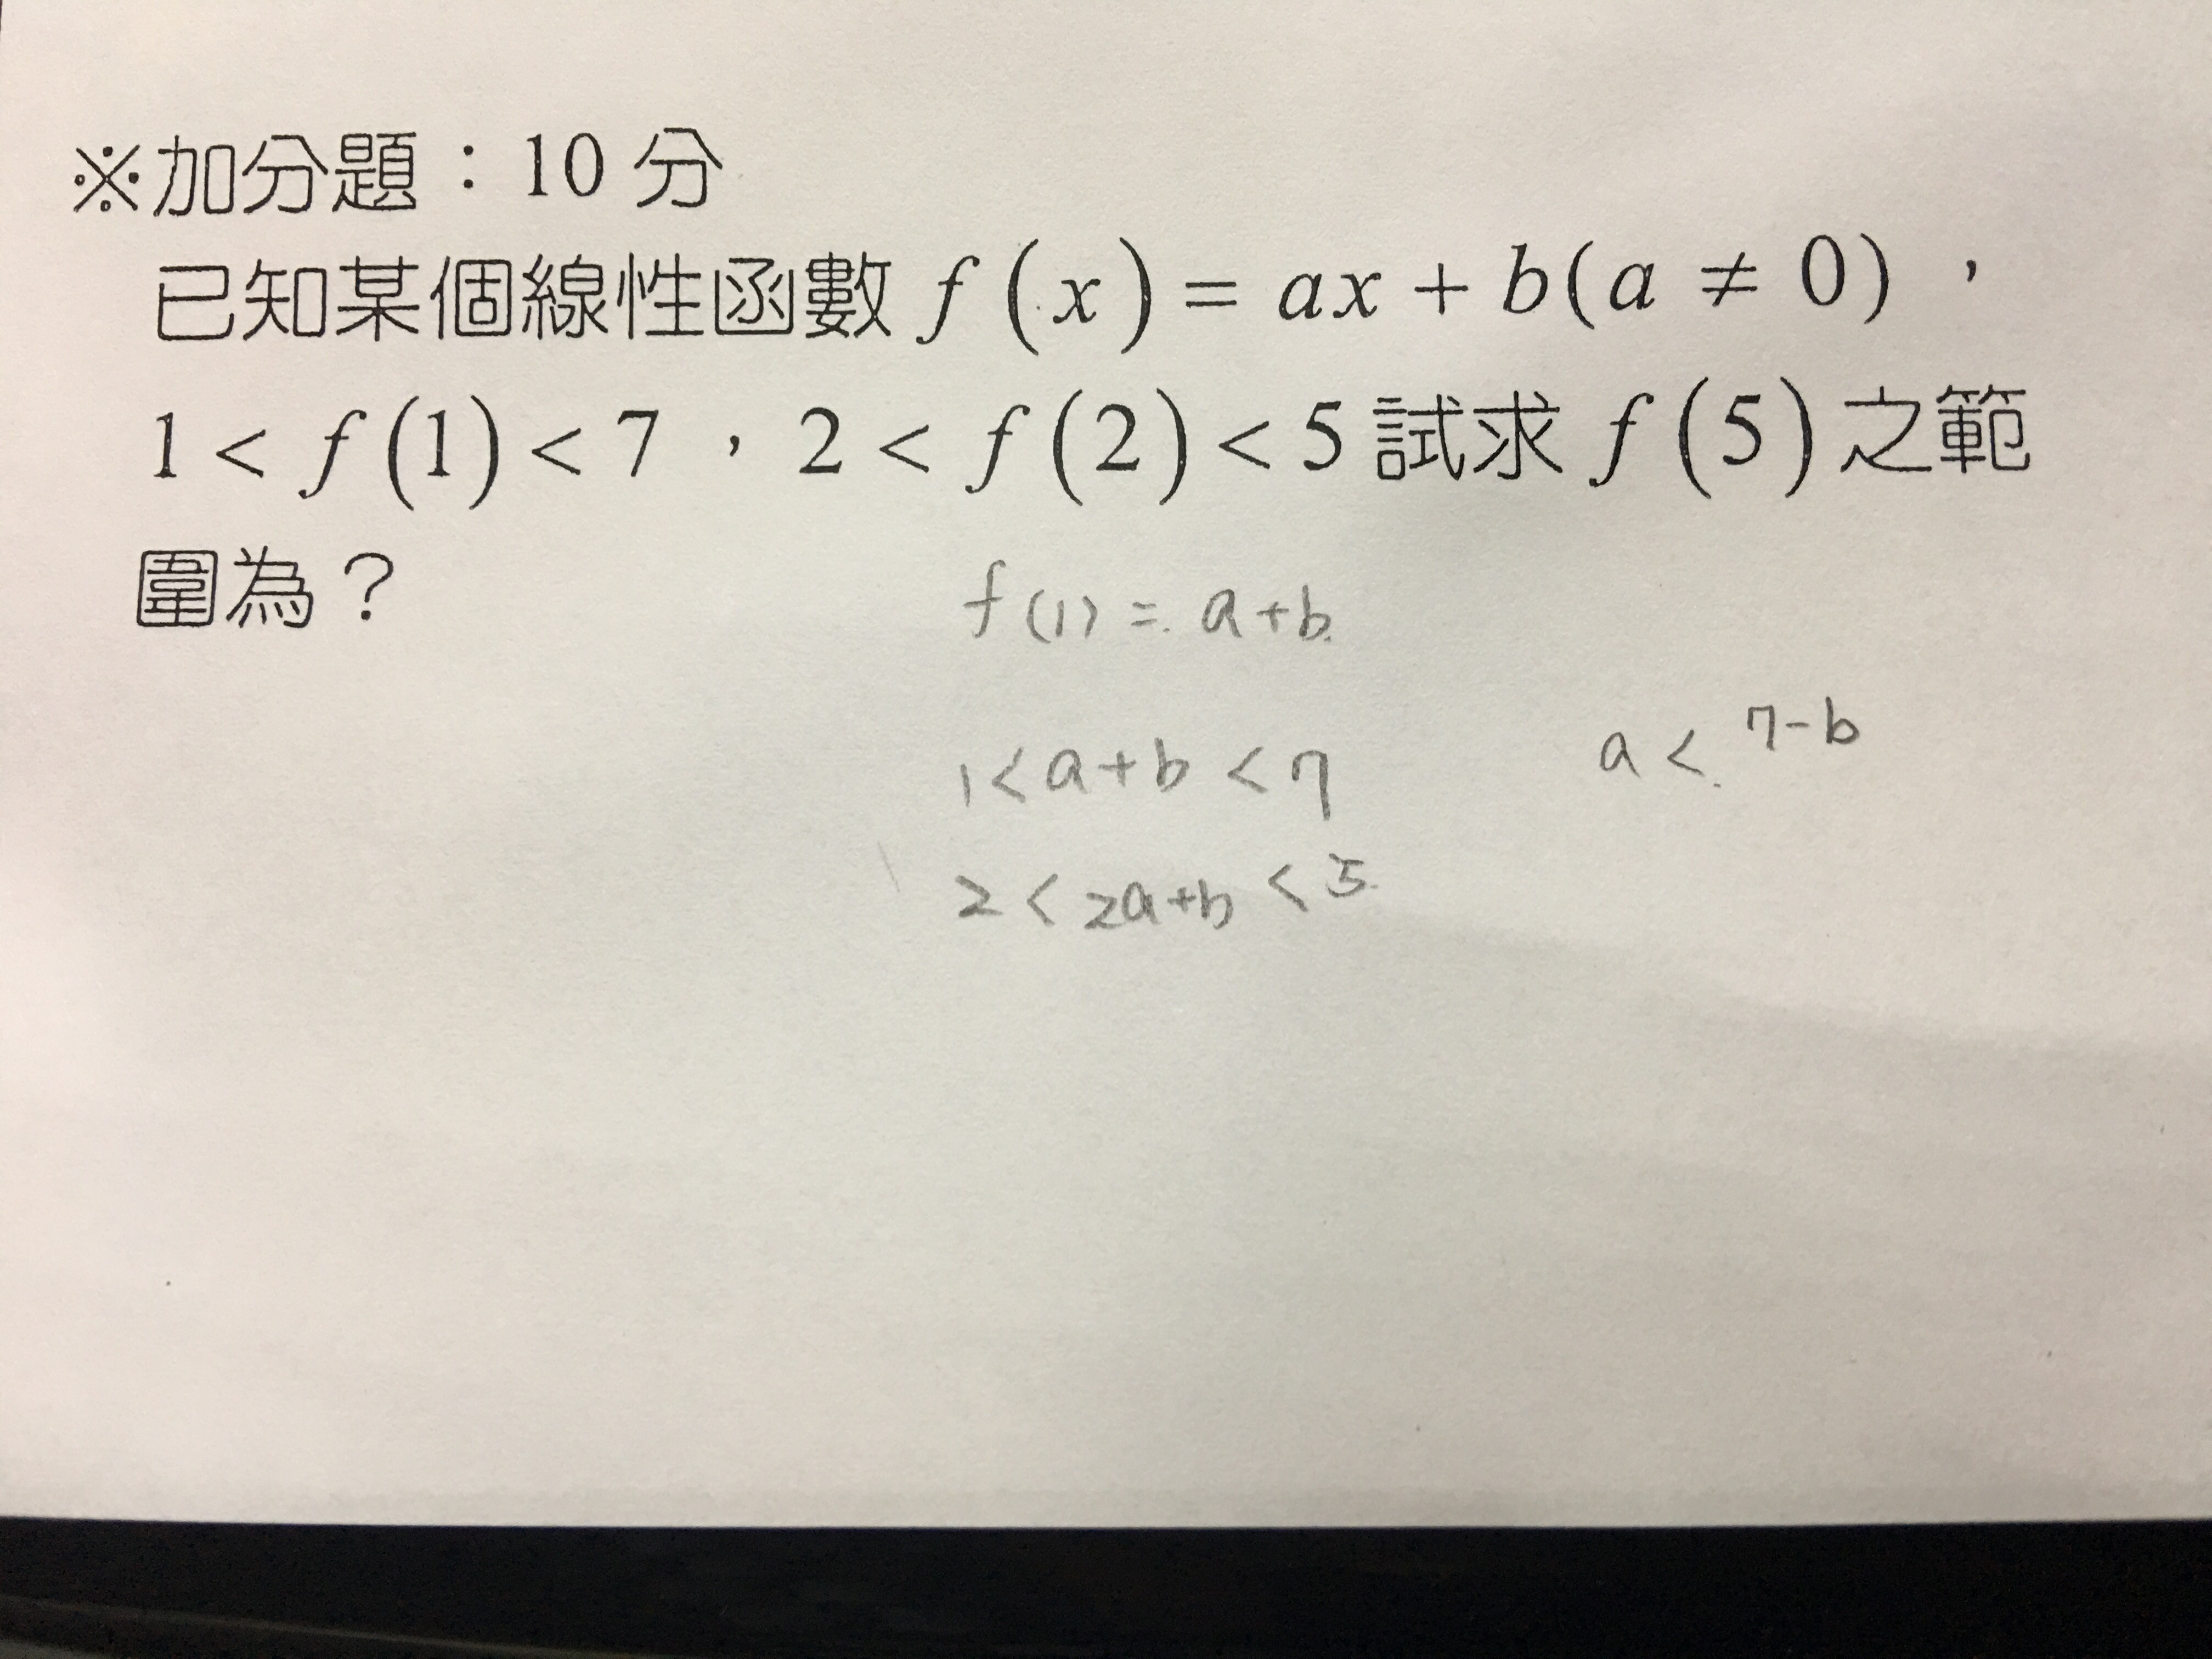 ※加分題：10 分
已知某個線性函數 f(x) = ax + b(a ≠ 0)，
1 < f(1) < 7，2 < f(2) < 5 試求 f(5) 之範
圍為？
f(1) = a+b
1 < a+b < 7
a < 7-b
2 < 2a+b < 5